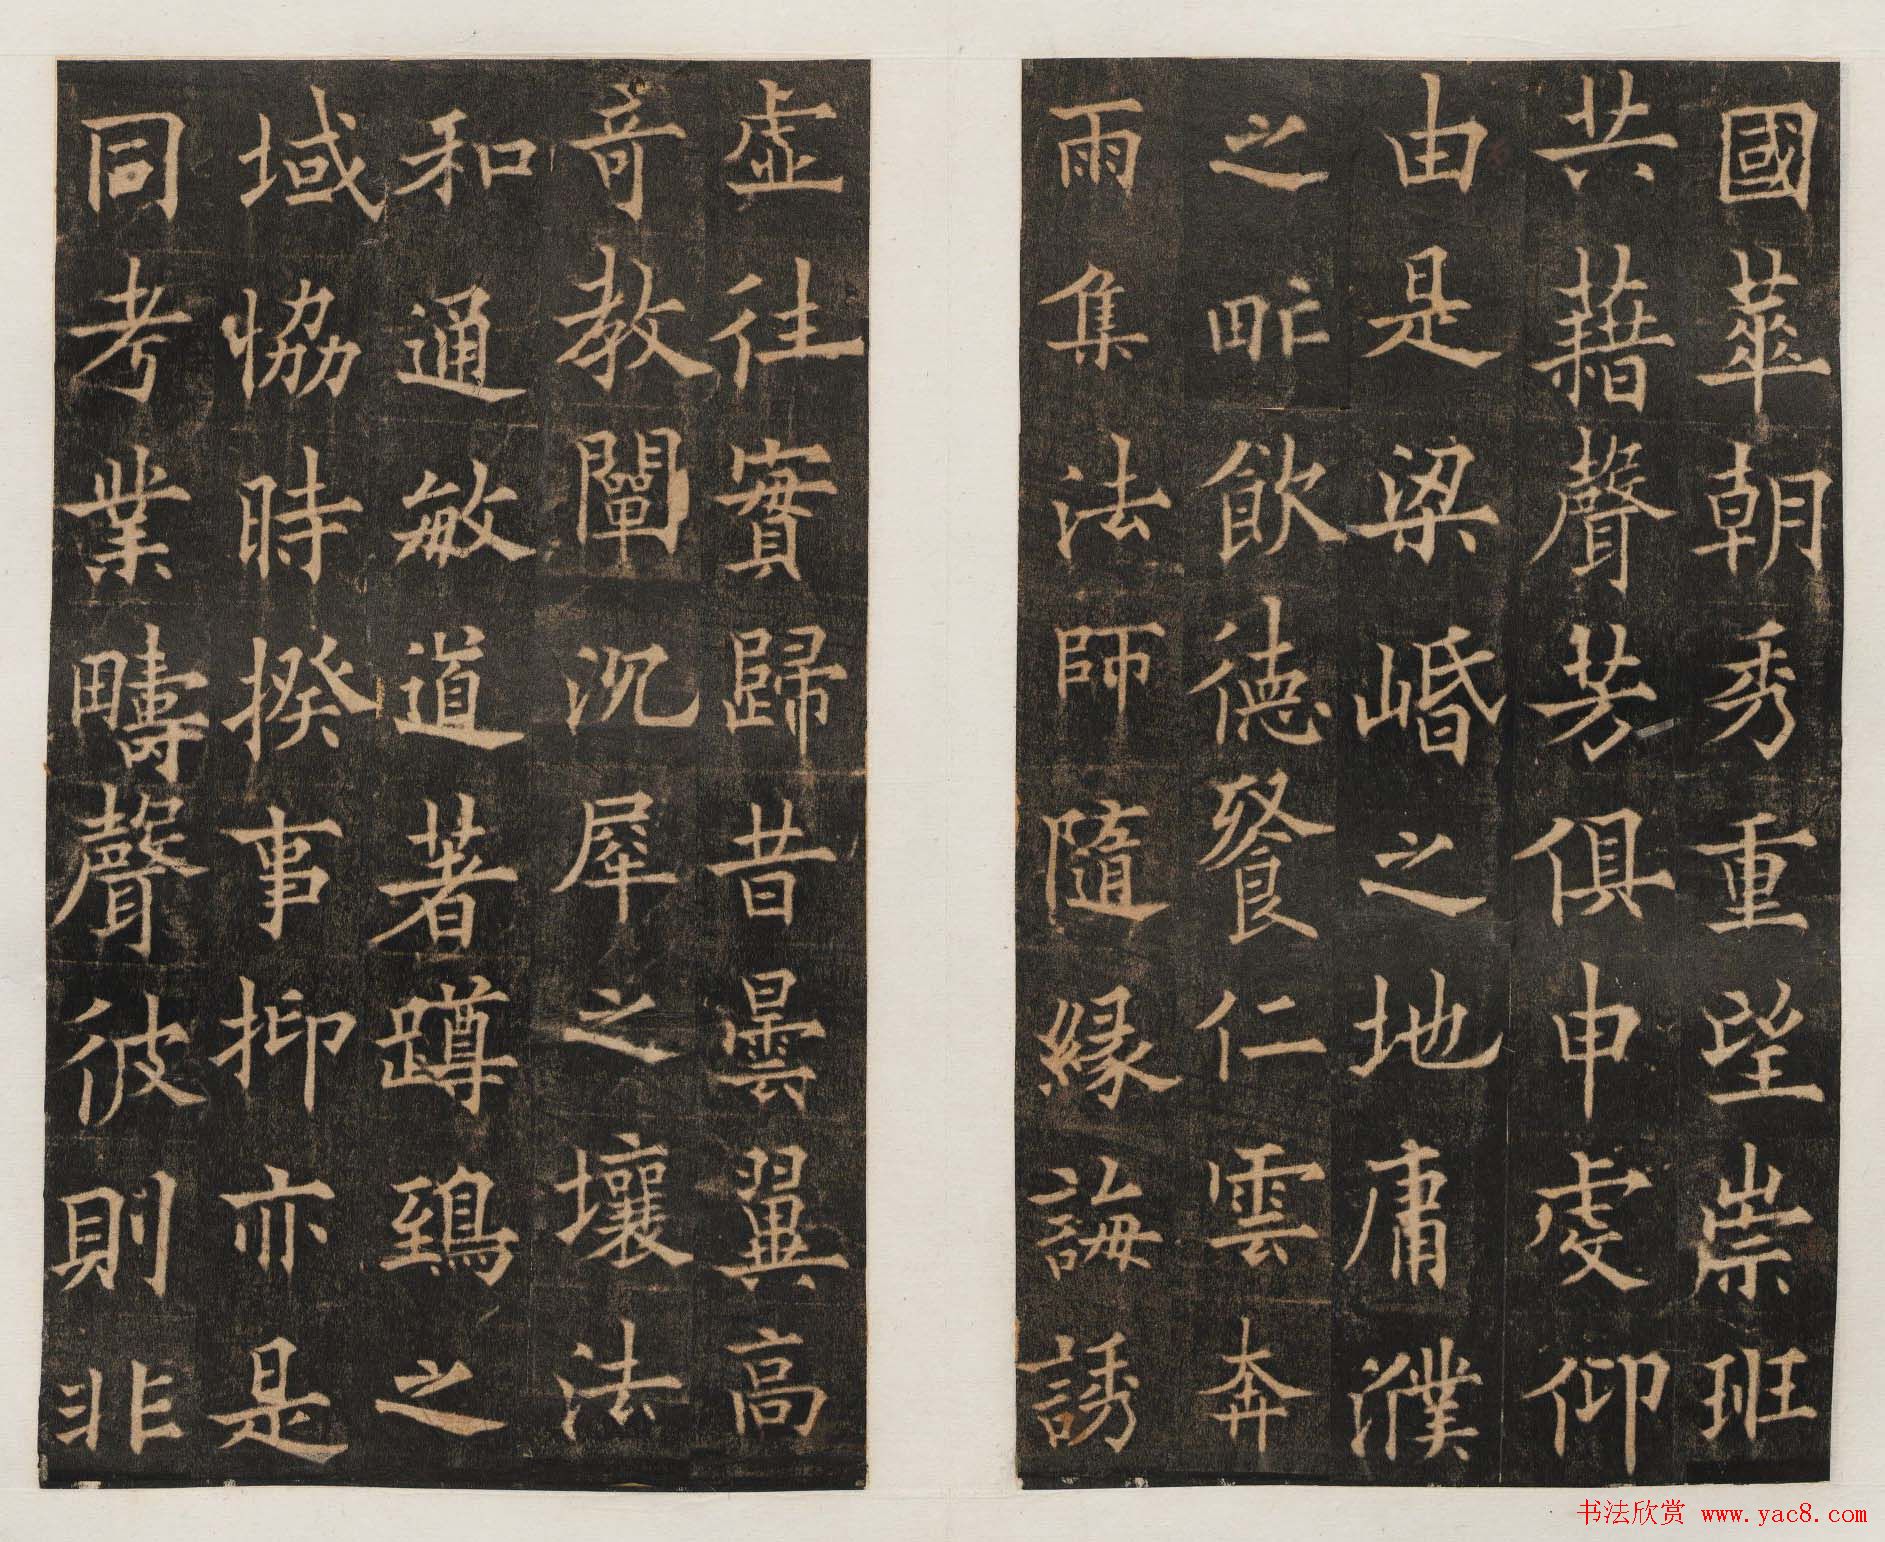 國華朝秀重望崇班
共藉聲芳俱申虔仰
由是梁崏之地庸濮
之甿飲德餐仁雲奔
雨集法師隨緣誨誘
虛往實歸昔曇翼高
奇教闡沉犀之壤法
和通敏道著蹲鵄之
域協時揆事抑亦是
同考業疇聲彼則非
书法欣赏 www.yac8.com